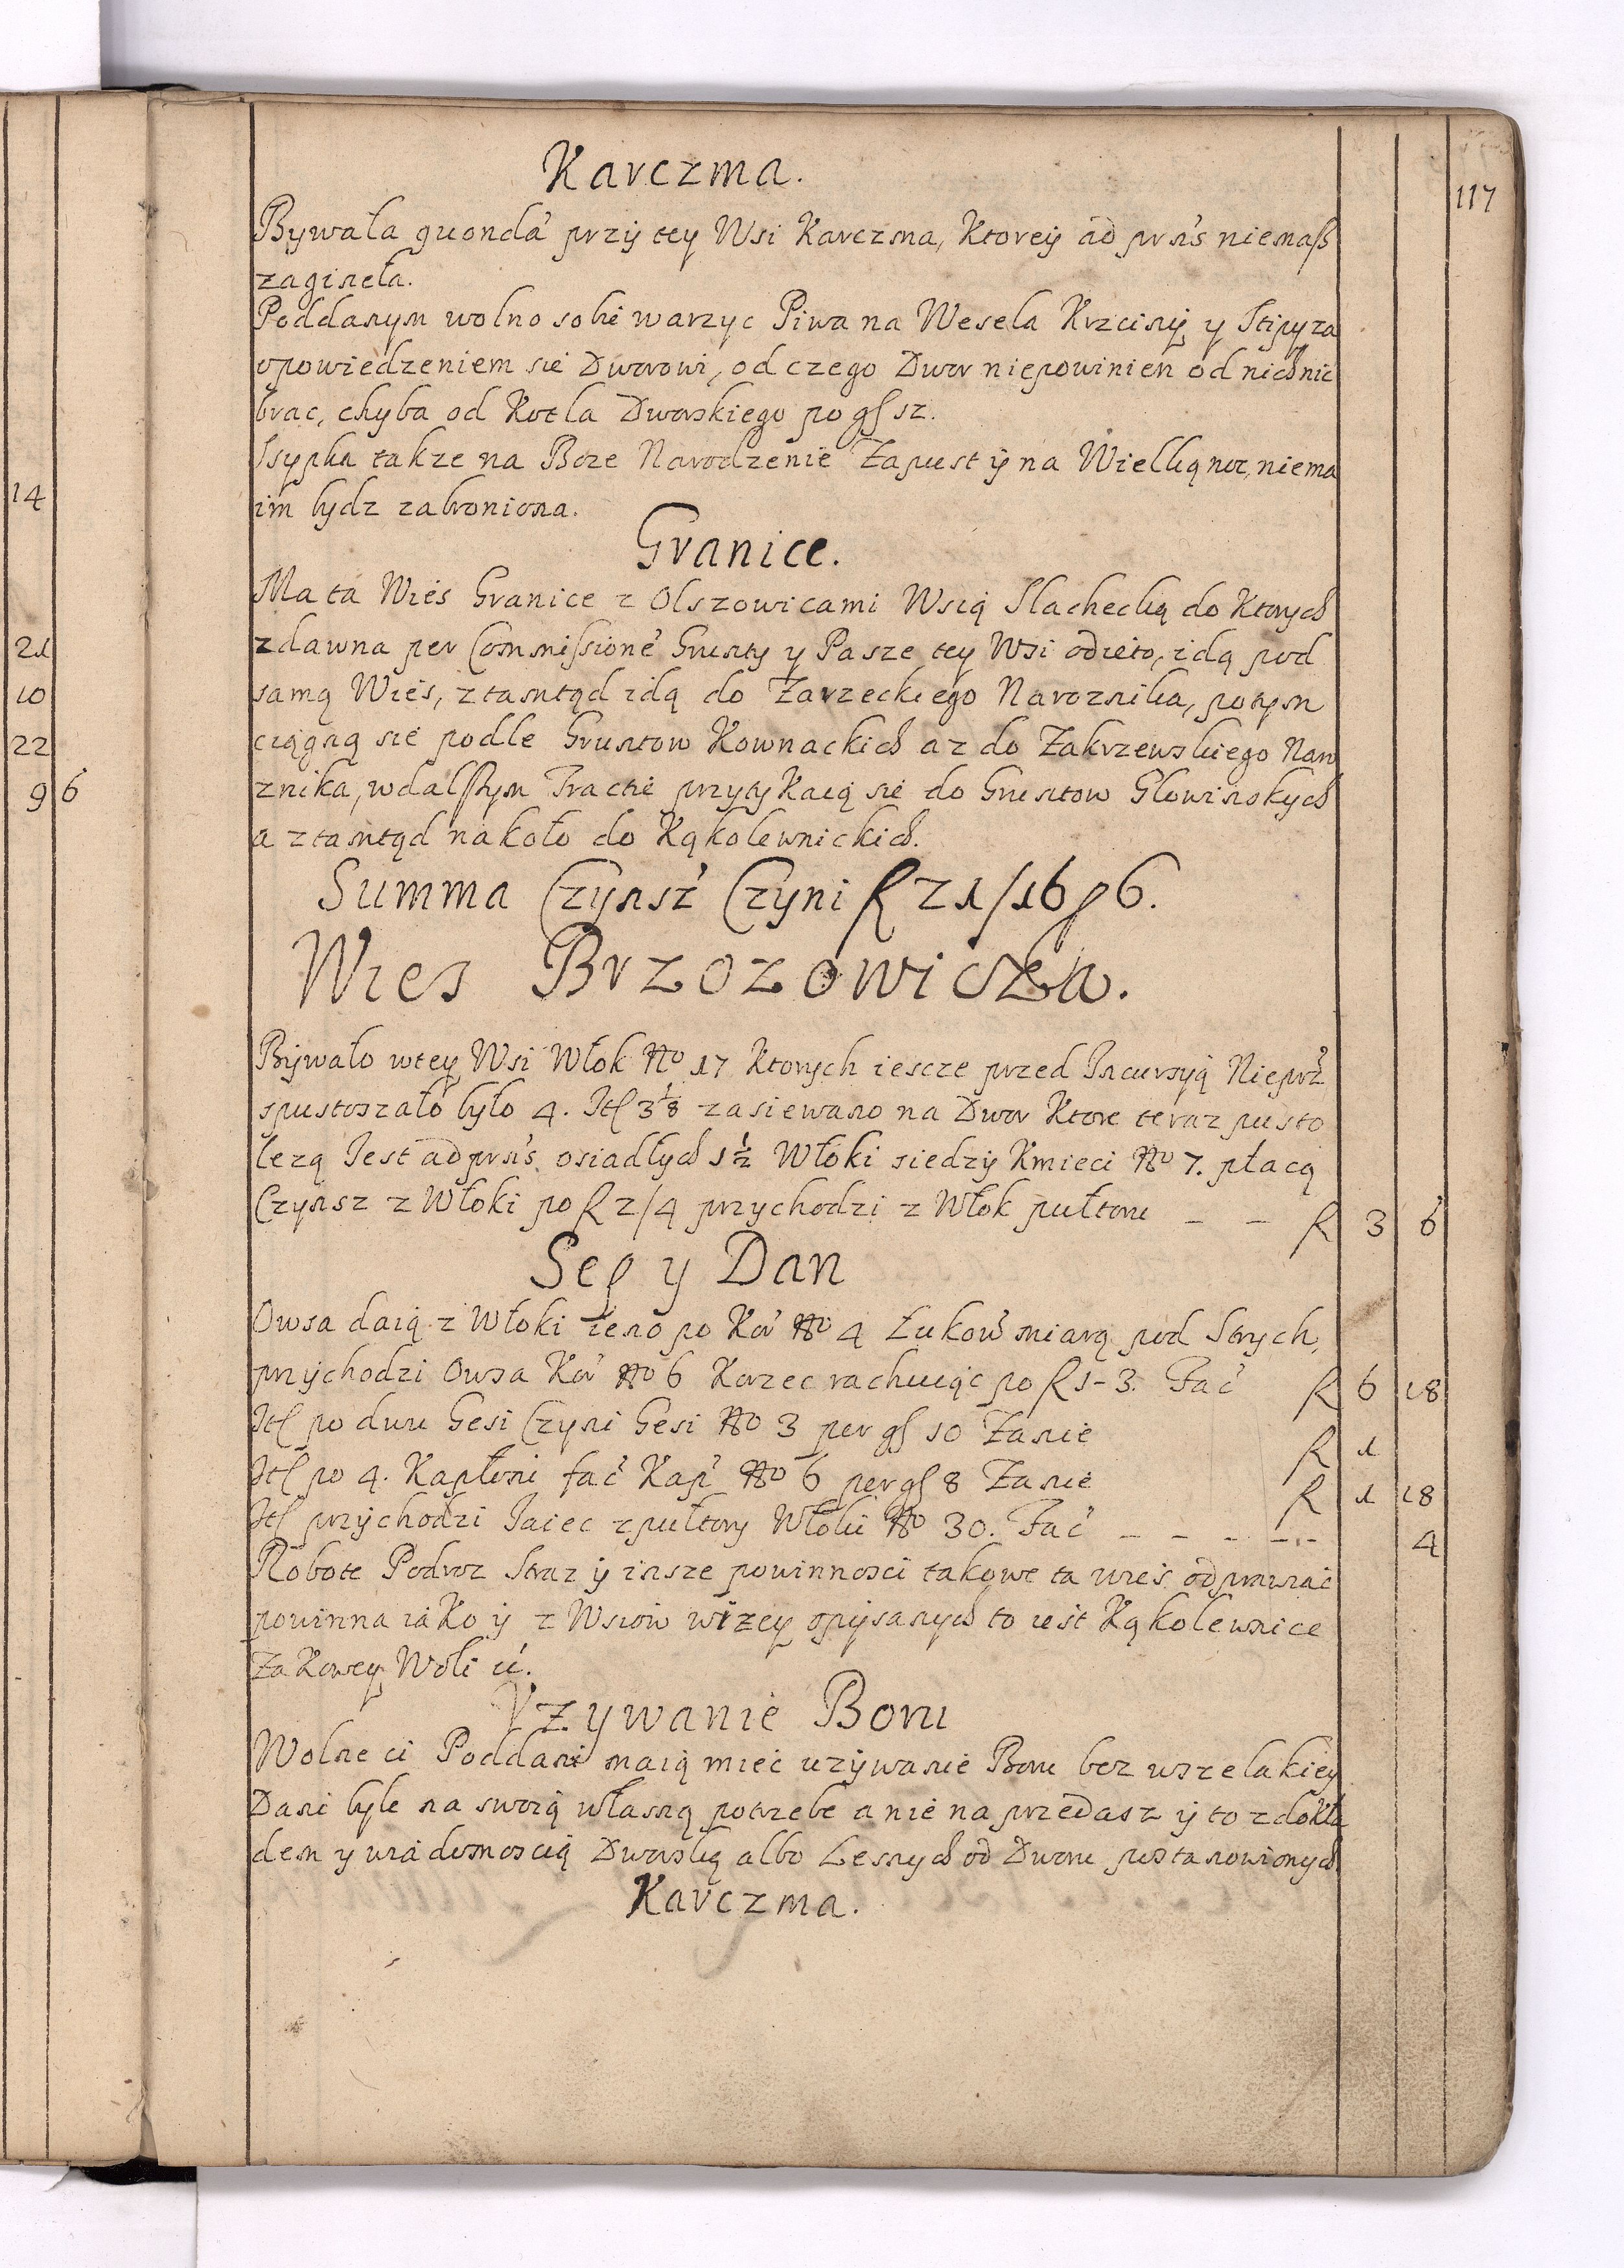 117
Karczma.
Bywała quondã przÿ teÿ Wsi Karczma, Ktoreÿ ad prns niemasz
zagineła.
Poddanym wolno sobie warzyc Piwa na Wesela Krzcinÿ y Stÿpÿ za
opowiedzeniem sie Dworowi, od czego Dwor niepowinien od nich nic
brac, chyba od Kotla Dworskiego po gs 12.
Ssypka takze na Boze Narodzenie Zapust ÿ na Wielkąnoc, niema
im bydz zabroniona.
Granice.
Ma ta Wies Granice z Olszowicami Wsią Slachecką do Ktorych
zdawna per Commissionē Grunty y Pasze tey Wsi odieto, idą pod
samą Wies, ztamtąd idą do Zarzeckiego Naroznika, potym
ciągną sie podle Gruntow Kownackich az do Zakrzewskiego Naro
znika, wdalszym Tractie przytykaią sie do Gruntow Glowinskych
a ztamtąd nakoło do Kąkolewnickich.
Summa Czynsz Czyni f 21/16 p 6.
Wies Brzozowiczka.
Bÿwało wteÿ Wsi Włok No 17 Ktorych iescze przed Incursyą Nieprz
spustoszało było 4. Itt 3 1/8 zasiewano na Dwor Ktore teraz pusto
lezą Iest ad prns osiadłych 1 1/2 Włoki siedzÿ Kmieci No 7. płacą
Czynsz z Włoki po f 2/4 przychodzi z Włok pułtoru - - f 3 6
Sep y Dan
Owsa daią z Włoki ieno po Kor No 4 Łukow miarą pod Strych,
przÿchodzi Owsa Kor No 6 Korzec rachuiąc po f 1-3. Fac f 6 18
Itt po dwu Gesi Czyni Gesi No 3 per gs 10 Zanie f 1
Itt po 4. Kapłoni fac Kap No 6 per gs 8 Zanie f 1 18
Itt przÿchodzi Iaiec z pułtory Włoki No 30. Fac - - - - - 4
Robote Podroz Straz ÿ insze powinnosci takowe ta wies odprawiac
powinna iako ÿ z Wsiow wizeÿ opÿsanych to iest Kąkolewnice
Zakowey Woli
Vzywanie Boru
Wolne ci Poddani maią miec uzÿwanie Boru bez wszelakieÿ
Dani byle na swoią własną potrzebe a nie na przedasz ÿ to z dokła
dem y wiadomoscią Dworską albo Lesnych od Dworu postanowionych
Karczma.
14
21
10
22
9 6